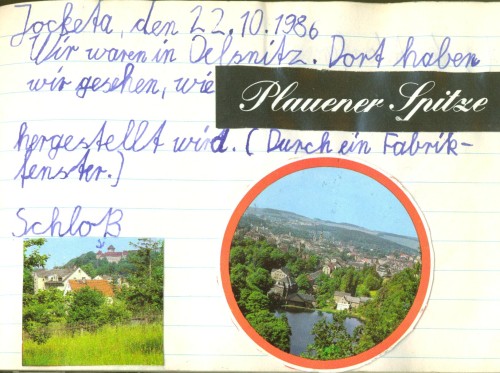 Jocketa, den 22.10.1986
Wir waren in Oelsnitz. Dort haben
wir gesehen, wie
Plauener Spitze
hergestellt wird. (Durch ein Fabrik-
fenster.)
Schloß